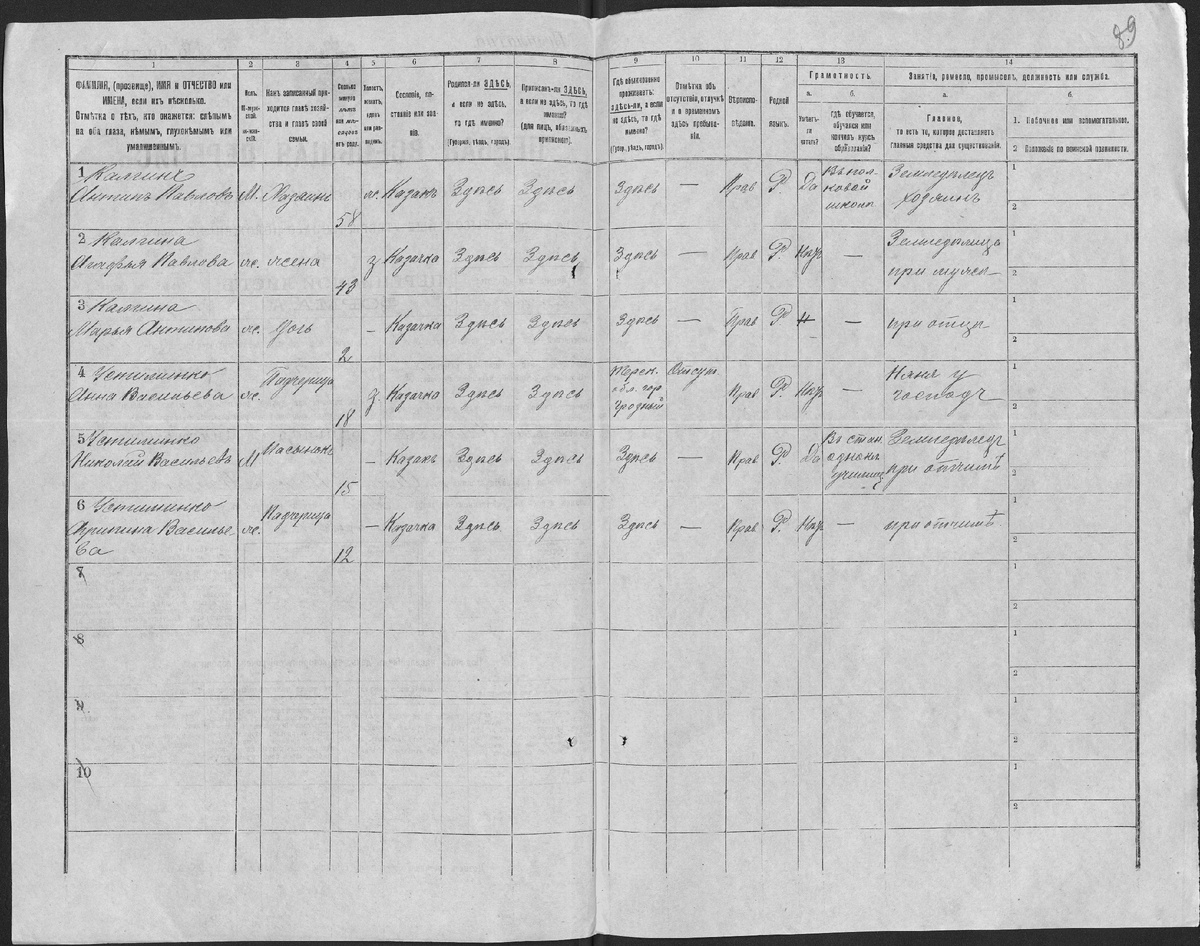 89
1 2 3 4 5 6 7 8 9 10 11 12 13 14
ФАМИЛІЯ, (прозвище), ИМЯ и ОТЧЕСТВО или
ИМЕНА, если ихъ нѣсколько.
Отмѣтка о тѣхъ, кто окажется: слѣпымъ
на оба глаза, нѣмымъ, глухонѣмымъ или
умалишеннымъ.
Полъ.
М-мужской.
Ж-женскій.
Какъ записанный при-
ходится главѣ хозяй-
ства и главѣ своей
семьи.
Сколько
минуло
лѣтъ
или мѣ-
сяцевъ
отъ роду.
Холостъ,
женатъ,
вдовъ
или раз-
веденъ.
Сословіе, со-
стояніе или зва-
ніе.
Родился-ли ЗДѢСЬ,
а если не здѣсь,
то гдѣ именно?
(Губернія, уѣздъ, городъ).
Приписанъ-ли ЗДѢСЬ,
а если не здѣсь, то гдѣ
именно?
(для лицъ, обязанныхъ
припискою).
Гдѣ обыкновенно
проживаетъ:
ЗДѢСЬ-ЛИ, а если
не здѣсь, то гдѣ
именно?
(Губер, уѣздъ, городъ).
Отмѣтка объ
отсутствіи, отлучкѣ
и о временномъ
здѣсь пребыва-
ніи.
Вѣроиспо-
вѣданіе.
Родной
языкъ.
Грамотность.
а.
Умѣетъ-
ли
читать?
б.
Гдѣ обучается,
обучался или
кончилъ курсъ
образованія?
Занятія, ремесло, промыселъ, должность или служба.
а.
Главное,
то есть то, которое доставляетъ
главныя средства для существованія.
б.
1. Побочное или вспомогательное.
2 Положеніе по воинской повинности.
1 Калгинъ
Антипъ Павловъ М. Хозяинъ 58 ж. Казакъ Здѣсь Здѣсь Здѣсь — Прав Р. Да Въ пол-
ковой
школѣ Земледѣлецъ
хозяинъ
1
2
2 Калгина
Агафья Павлова ж. жена 43 з Казачка Здѣсь Здѣсь Здѣсь — Прав Р. Нѣт — Земледѣлица
при мужѣ
1
2
3 Калгина
Марья Антипова ж. дочь 2 - Казачка Здѣсь Здѣсь Здѣсь — Прав Р Н — при отцѣ
1
2
4 Устименко
Анна Васильева ж. Падчерица 18 д Казачка Здѣсь Здѣсь Терск.
обл. гор
Грозный Отсут. Прав Р. Нѣт — Няня у
господъ
1
2
5 Устименко
Николай Васильевъ М Пасынокъ 15 - Казакъ Здѣсь Здѣсь Здѣсь — Прав Р. Да Въ стан. училищ Земледѣлецъ
при отчимѣ
1
2
6 Устименко
Арипина Василье-
ва ж. Падчерица 12 - Казачка Здѣсь Здѣсь Здѣсь — Прав Р. Нѣт — при отчимѣ
1
2
7
1
2
8
1
2
9
1
2
10
1
2